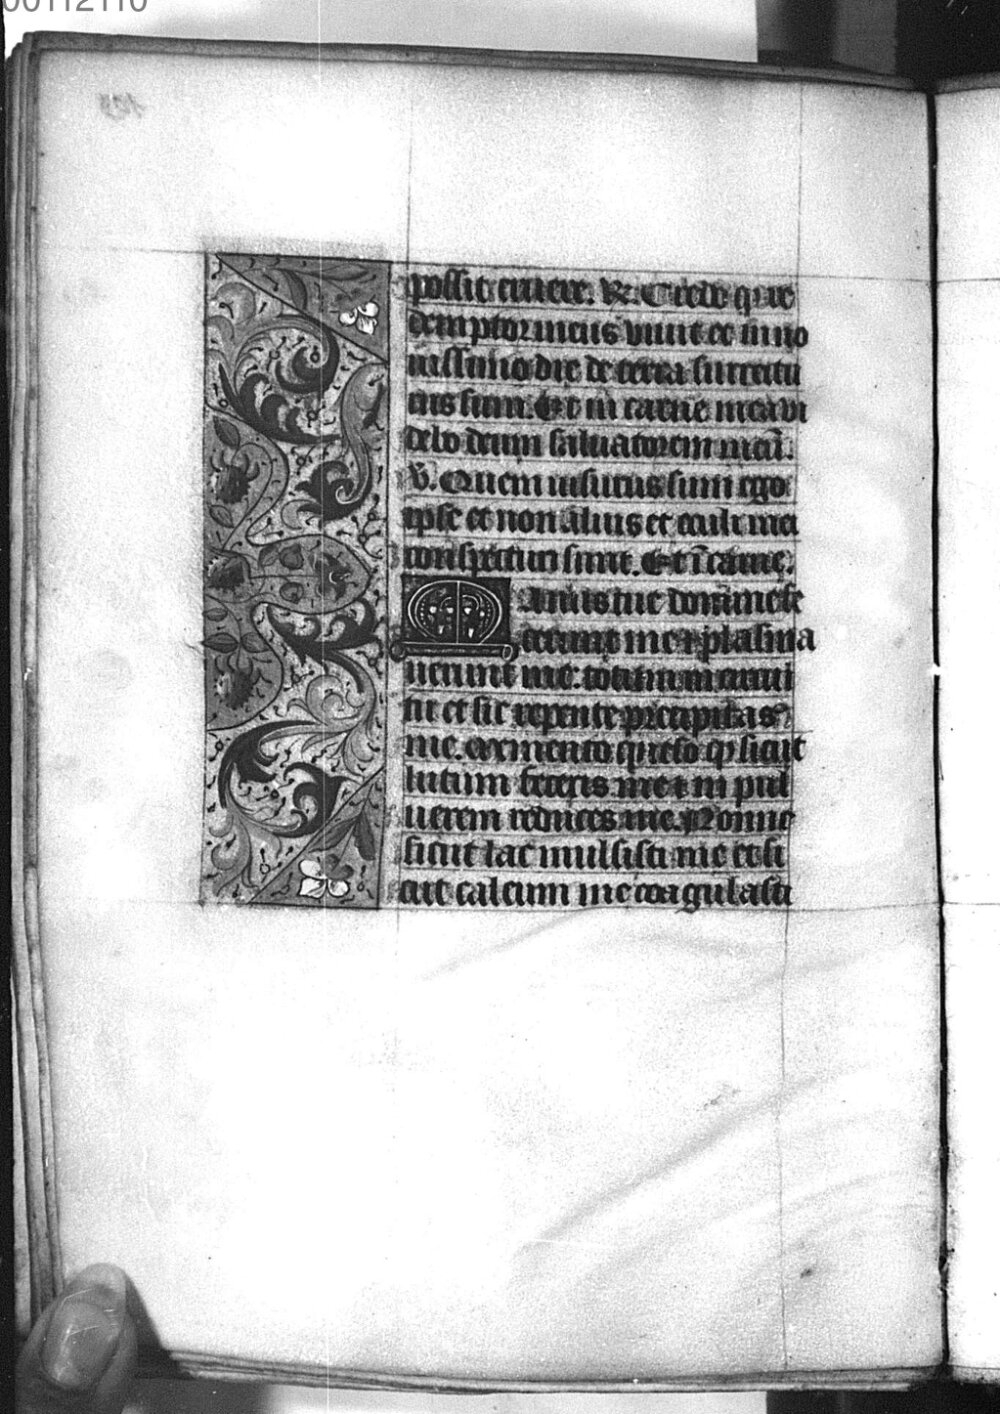 00112110
possit eruere. R. Credo que
demptor meus viuit et in no
uissimo die de terra surrectu
rus sum. Et in carne mea vi
debo deum saluatorem meū.
V̄. Quem uisurus sum ego
ipse et non alius et oculi mei
conspecturi sunt. Et ī carne.
Manus tue domine fe
cerunt me ⁊ plasma
uerunt me: totum in circui
tu et sic repente precipitas
me. Memento queso ꝙ sicut
lutum feceris me ⁊ in pul
uerem reduces me. Nonne
sicut lac mulsisti me et si
cut caseum me coagulasti